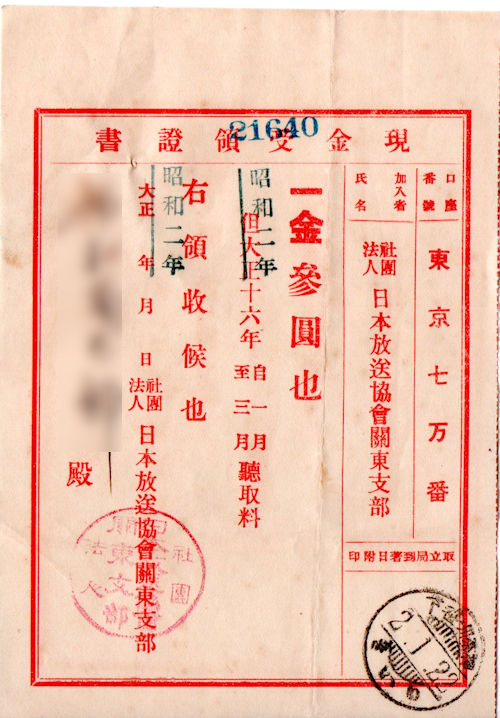 21640
現金受領證書
口座番號
東京七万番
加入者氏名
社團法人 日本放送協會關東支部
取立局到著日附印
一金參圓也
但大正十六年 自一月至三月 聽取料
昭和二年
右領收候也
昭和二年
大正 年 月 日
社團法人 日本放送協會關東支部
殿
2.1.22